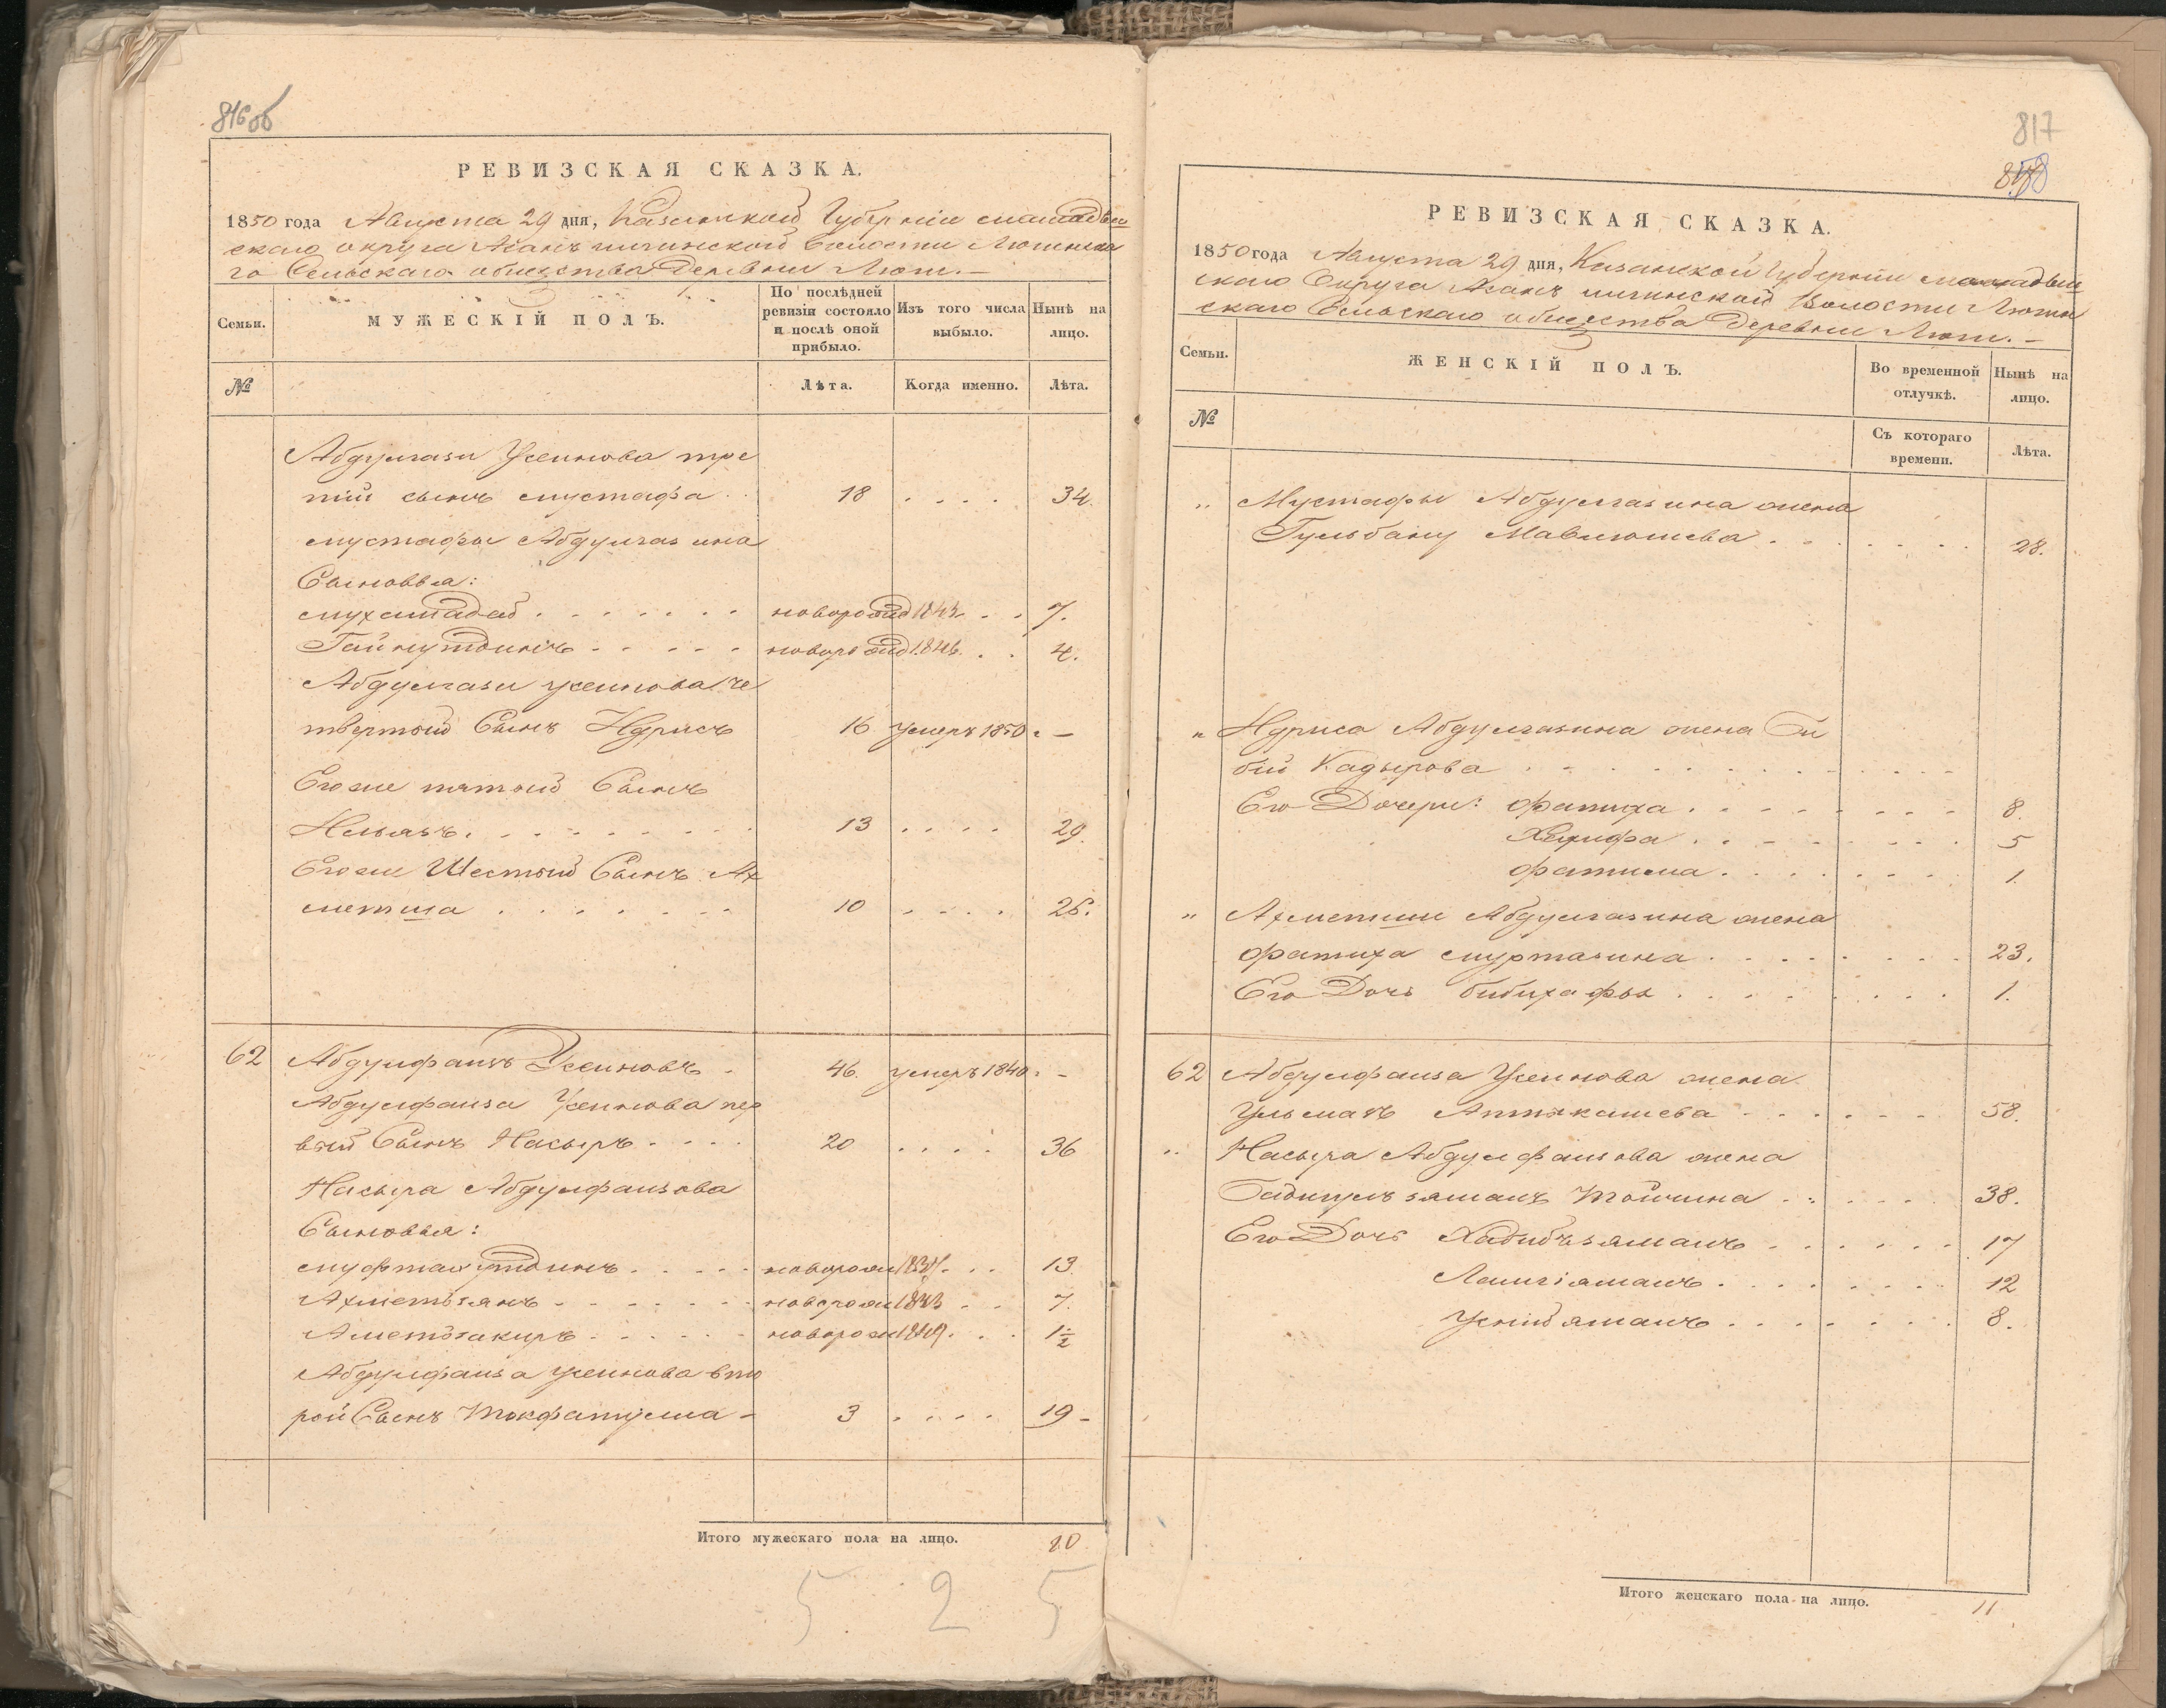 816 об
РЕВИЗСКАЯ СКАЗКА.
1850 года Августа 29 дня, Казанской Губерніи мамадыш
скаго округа Асанъ илгинской волости Люгинска
го Сельскаго общества Деревни Люги.
Семьи.
МУЖЕСКІЙ ПОЛЪ.
По послѣдней ревизіи состояло и послѣ оной прибыло.
Изъ того числа выбыло.
Нынѣ на лицо.
№
Лѣта.
Когда именно.
Лѣта.
Абдулгази Усеинова тре
тій сынъ мустафа 18 34.
мустафы Абдулгазина
Сыновья:
мухамадей новорожд 1843 7.
Гайнутдинъ новорожд 1846. 4.
Абдулгази усеинова че
твертой Сынъ Идрисъ 16 умеръ 1850 —
Его же пятой Сынъ
Ильязъ 13 29.
Его же Шестой Сынъ Ах
метша 10 26.
62 Абдулфаизъ Усеиновъ 46. умеръ 1840 -
Абдулфаиза Усеинова пер
вый Сынъ Насыръ 20 36
Насыра Абдулфаизова
Сыновья:
муфтахутдинъ новорож 1837 13.
Ахметьзянъ новорож 1843 7.
Аметзакиръ новорож 1849 1½
Абдулфаиза усеинова вто
рой Сынъ Токфатулла - 3 19 -
Итого мужескаго пола на лицо. 10
5 2 5
817
858
РЕВИЗСКАЯ СКАЗКА.
1850 года Августа 29 дня, Казанской Губерніи мамадыш
скаго Округа Асанъ илгинской Волости Люгин
скаго Сельскаго общества Деревни Люги. -
Семьи.
ЖЕНСКІЙ ПОЛЪ.
Во временной отлучкѣ.
Нынѣ на лицо.
№
Съ котораго времени.
Лѣта.
" Мустафы Абдулгазина жена
Гульбану Мавлюшева 28.
" Идриса Абдулгазина жена Би
бій Кадырова
Его Дочери: фатиха 8.
фатима 1.
" Ахметши Абдулгазина жена
фатиха муртазина 23.
Его Дочь бибихафза 1.
62 Абдулфаиза Усеинова жена
Ульмаъ Аптыкашева 58.
" Насыра Абдулфаизова жена
Бадигулъзяманъ Тойчина 38.
Его Дочь Хабибъзяманъ 17
12
8.
Итого женскаго пола на лицо. 11